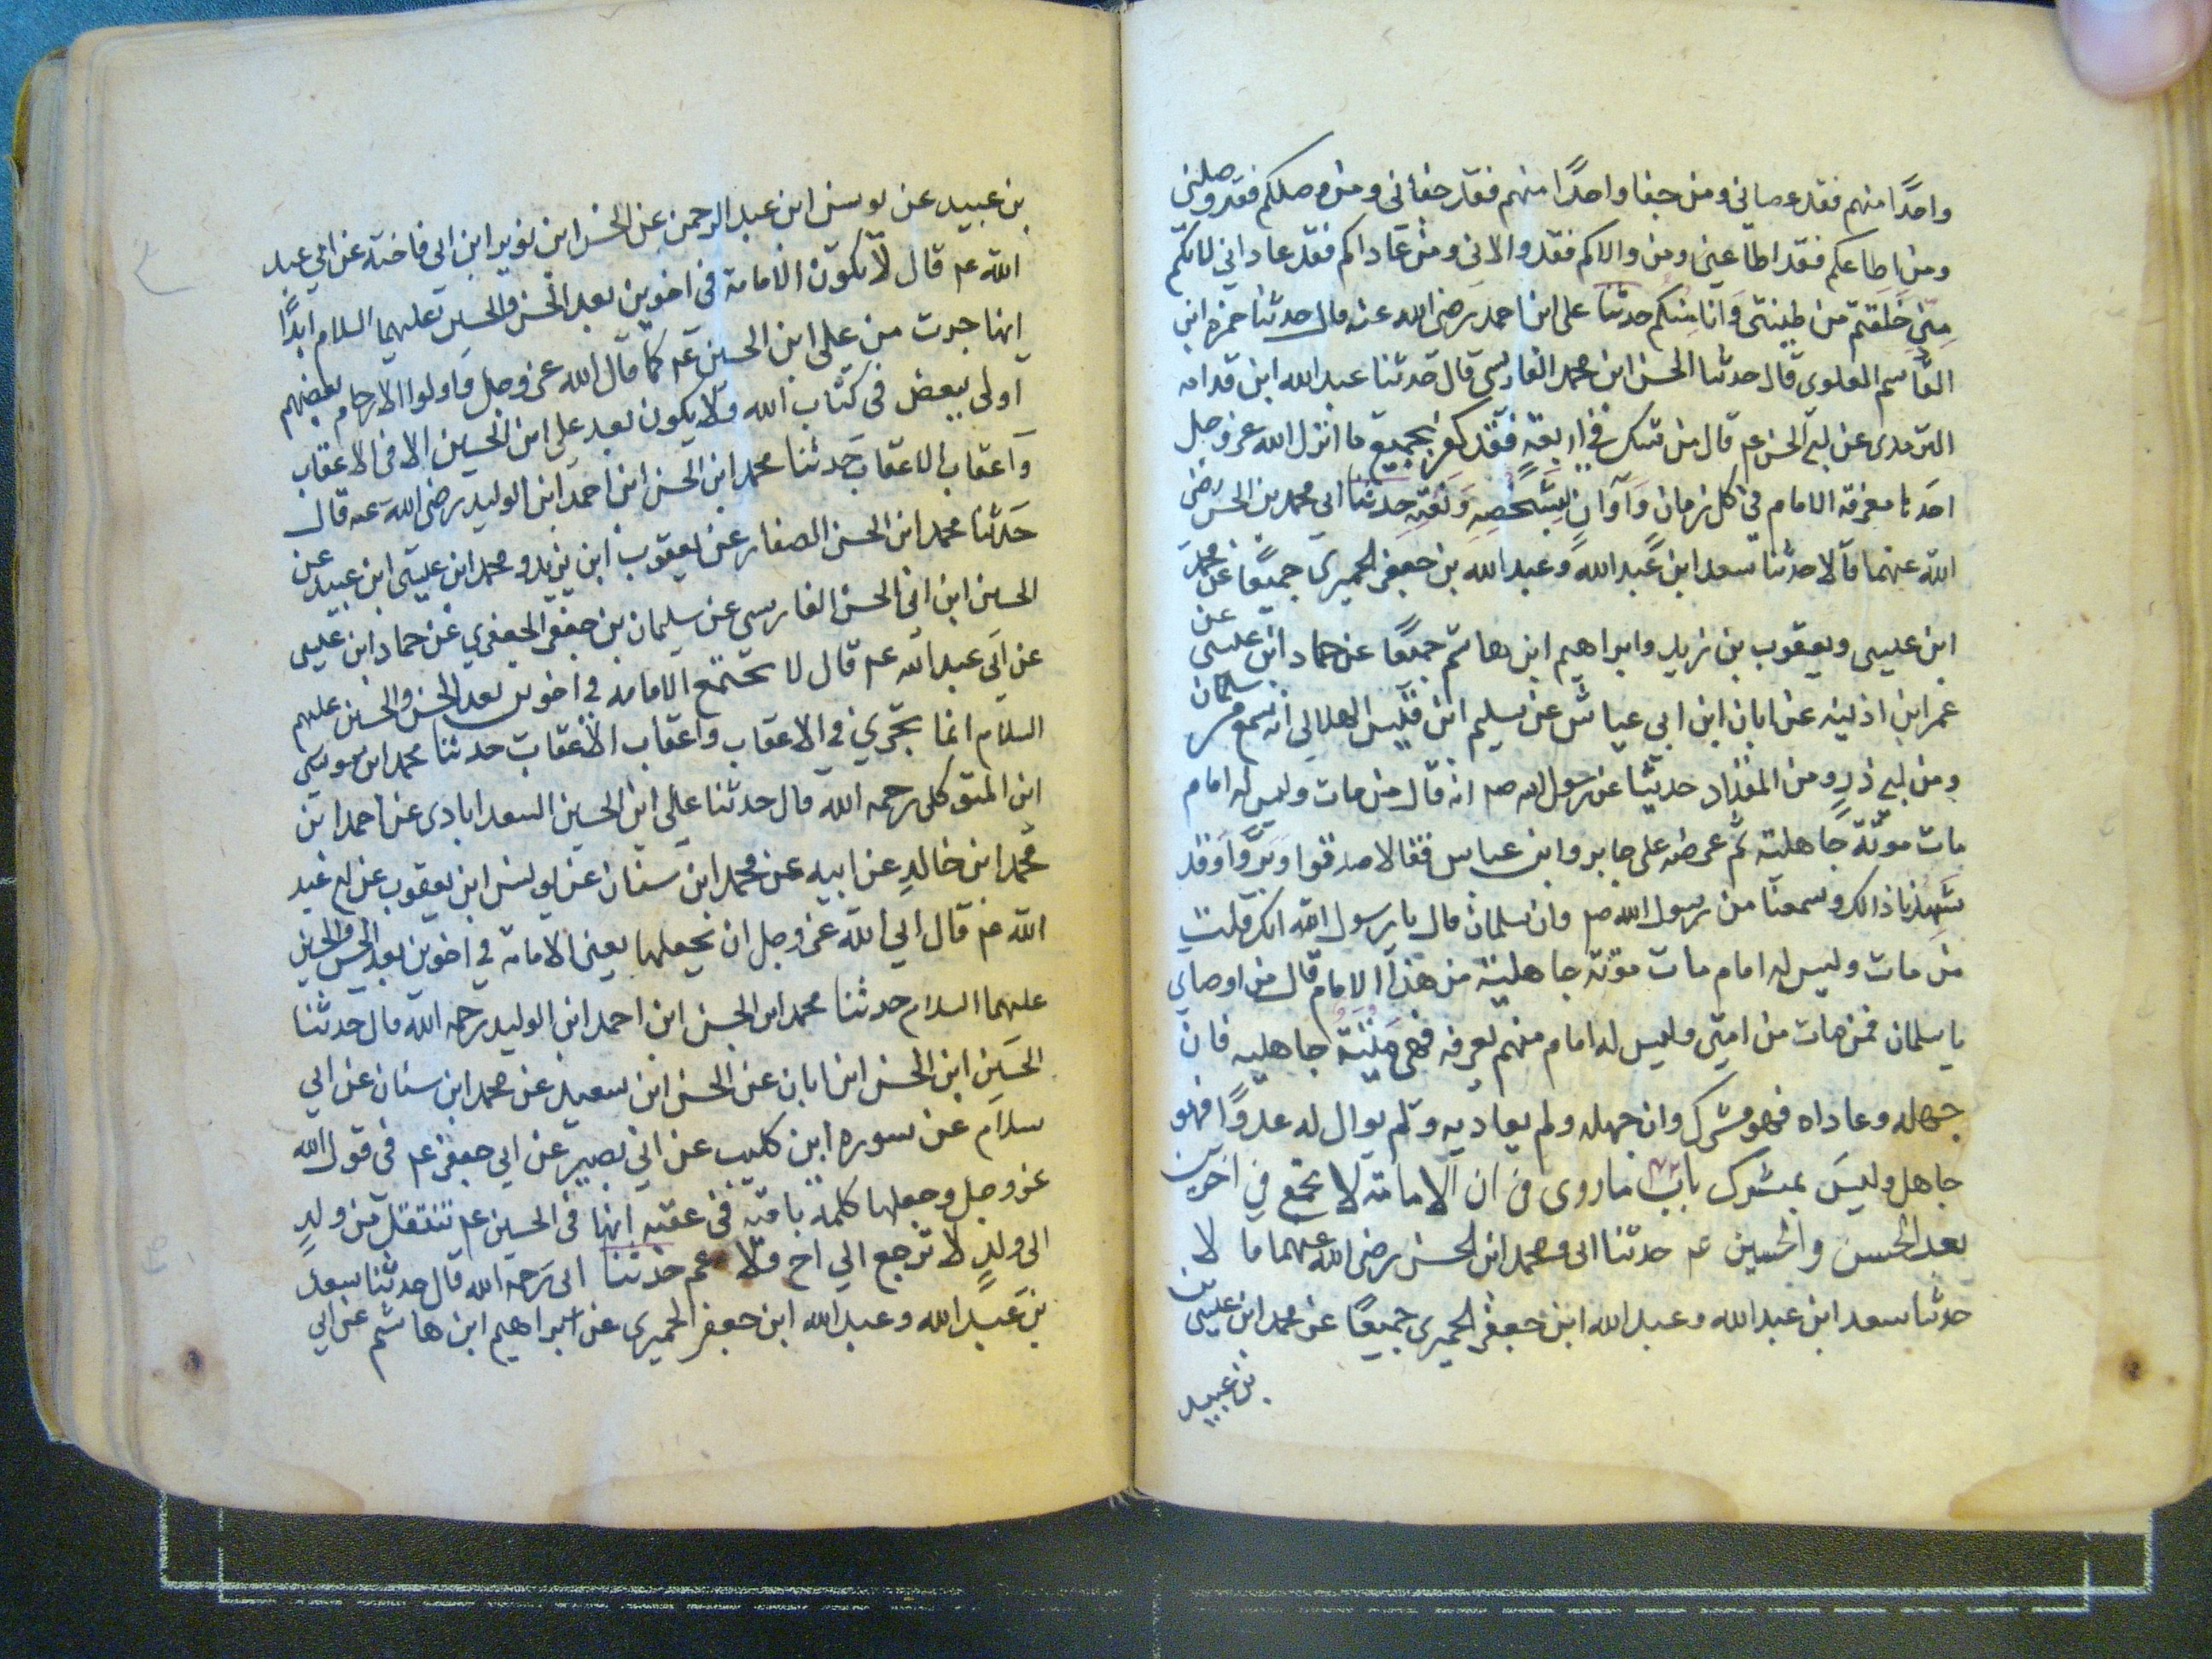 واحدًا منهم فقد عصاني ومن جفا واحدًا منهم فقد جفاني ومن وصلكم فقد وصلني
ومن اطاعكم فقد اطاعني ومن والاكم فقد والاني ومن عاداكم فقد عاداني لانكم
مني خلقتم من طينتي وانا منكم حدثنا علي ابن احمد رضي الله عنه قال حدثنا حمزه ابن
القاسم العلوي قال حدثنا الحسن ابن محمد الفارسي قال حدثنا عبد الله ابن قدامه
الترمدي عن ابي الحسن عم قال من شك في اربعة فقد كفر بجميع ما انزل الله عز وجل
احدها معرفة الامام في كل زمان وآوان بشخصه ونعته حدثنا ابي محمد بن الحسن رضي
الله عنهما قالا حدثنا سعد ابن عبد الله وعبد الله بن جعفر الحميري جميعًا عن محمد
ابن عيسى ويعقوب بن يزيد وابراهيم ابن هاشم جميعًا عن حماد ابن عيسى عن
عمر ابن اذينه عن ابان ابن ابي عياش عن سليم ابن قيس الهلالي انه سمع من سلمان
ومن ابي ذر ومن المقداد حديثا عن رسول الله صم انه قال من مات وليس له امام
مات موتة جاهلية ثم عرضه على جابر وابن عباس فقالا صدقوا وبروا وقد
شهدنا ذالك وسمعنا من رسول الله صم وان سلمان قال يا رسول الله انك قلت
من مات وليس له امام مات موتة جاهلية من هذا الامام قال من اوصيائي
يا سلمان فمن مات من امتي وليس له امام منهم يعرفه فهي ميتة جاهليه فان
جهله وعاداه فهو مشرك وان جهله ولم يعاديه ولم يوال له عدوًا فهو
جاهل وليس بمشرك باب ما روى في ان الامامة لا تجتمع في اخوين
بعد الحسن والحسين عم حدثنا ابي ومحمد ابن الحسن رضي الله عنهما قالا
حدثنا سعد ابن عبد الله وعبد الله ابن جعفر الحميري جميعًا عن محمد ابن عيسى بن
بن عبيد
بن عبيد عن يونس ابن عبد الرحمن عن الحسن ابن ثوير ابن ابي فاخته عن ابي عبد
الله عم قال لا تكون الامامة في اخوين بعد الحسن والحسين عليهما السلام ابدًا
انها جرت من علي ابن الحسين عم كما قال الله عز وجل واولوا الارحام بعضهم
اولى ببعض في كتاب الله ولا يكون بعد علي ابن الحسين الا في الاعقاب
وآعقاب الاعقاب حدثنا محمد ابن الحسن ابن احمد ابن الوليد رضي الله عنه قال
حدثنا محمد ابن الحسن الصفار عن يعقوب ابن يزيد ومحمد ابن عيسى ابن عبيد عن
الحسين ابن ابي الحسن الفارسي عن سليمان بن جعفر الجعفري عن حماد ابن عيسى
عن ابي عبد الله عم قال لا تجتمع الامامه في اخوين بعد الحسن والحسين عليهم
السلام انما تجري في الاعقاب واعقاب الاعقاب حدثنا محمد ابن موسى
ابن المتوكل رحمه الله قال حدثنا علي ابن الحسين السعد ابادي عن احمد ابن
محمد ابن خالد عن ابيه عن محمد ابن سنان عن يونس ابن يعقوب عن ابي عبد
الله عم قال ابي الله عز وجل ان يجعلها يعني الامامة في اخوين بعد الحسن والحسين
عليهما السلام حدثنا محمد ابن الحسن ابن احمد ابن الوليد رحمه الله قال حدثنا
الحسين ابن الحسن ابن ابان عن الحسن ابن سعيد عن محمد ابن سنان عن ابي
سلام عن سوره ابن كليب عن ابي بصير عن ابي جعفر عم في قول الله
عز وجل وجعلها كلمة باقية في عقبه انها في الحسين عم تنتقل من ولد
الى ولد لا ترجع الي اخ ولا عم حدثنا ابي رحمه الله قال حدثنا سعد
بن عبد الله وعبد الله ابن جعفر الحميري عن ابراهيم ابن هاشم عن ابي